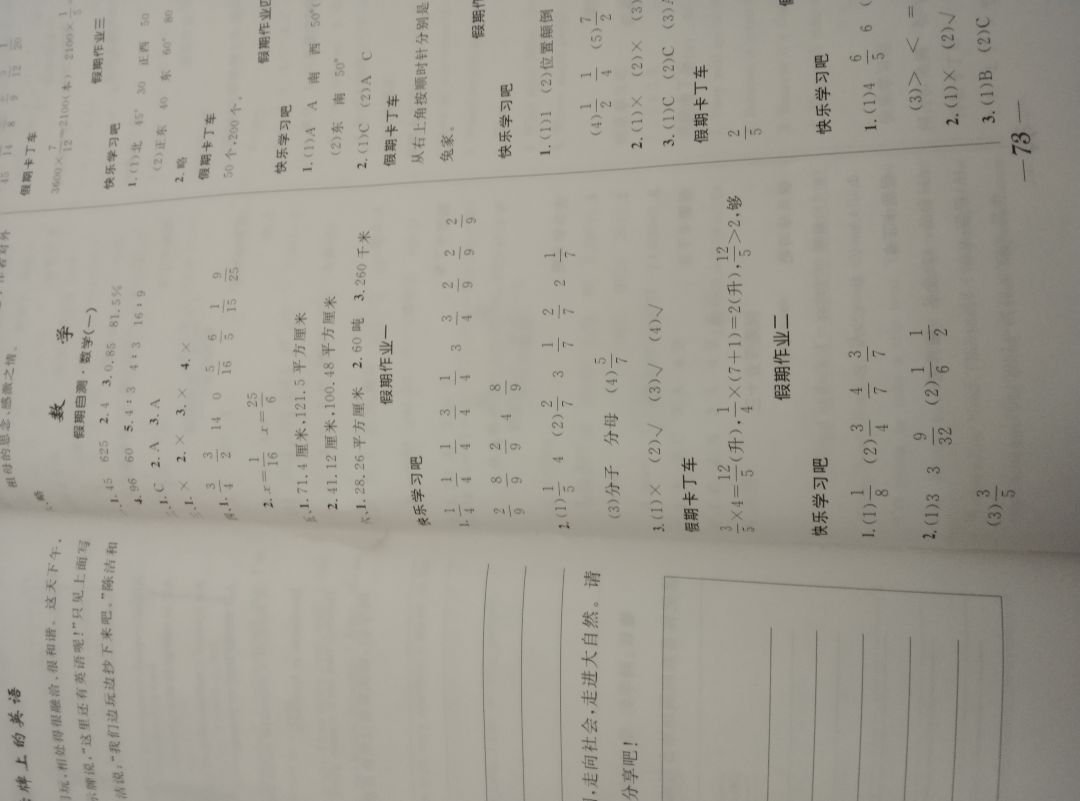 牌上的英语
玩,相处得很融洽,很和谐。这天下午,
示牌说,“这里还有英语呢!”只见上面写
洁说:“我们边玩边抄下来吧。”陈洁和
,走向社会,走进大自然。请
分享吧!
祖母的思念、感激之情。
数 学
假期自测·数学(一)
1. 45 625 2. 4 3. 0.85 81.5%
4. 96 60 5. 4∶3 4∶3 16∶9
1. C 2. A 3. A
1. × 2. × 3. × 4. ×
1. 3/4 3/2 14 0 5/16 6/5 1/15 9/25
2. x=1/16 x=25/6
1. 71.4 厘米,121.5 平方厘米
2. 41.12 厘米,100.48 平方厘米
1. 28.26 平方厘米 2. 60 吨 3. 260 千米
假期作业一
快乐学习吧
1. 1/4 1/4 1/4 3/4 1/4 3 3/4 2/9 2/9 2/9
2/9 8/9 2/9 4 8/9
2. (1)1/5 4 (2)2/7 3 1/7 2/7 2 1/7
(3)分子 分母 (4)5/7
3. (1)× (2)√ (3)√ (4)√
假期卡丁车
3/5×4=12/5(升),1/4×(7+1)=2(升),12/5>2,够
假期作业二
快乐学习吧
1. (1)1/8 (2)3/4 4/7 3/7
2. (1)3 3 9/32 (2)1/6 1/2
(3)3/5
假期卡丁车
3600×7/12=2100(本) 2100×1/5
假期作业三
快乐学习吧
1. (1)北 45° 30 正西 50
(2)正东 40 东 60° 80
2. 略
假期卡丁车
50 个,200 个。
假期作业四
快乐学习吧
1. (1)A A 南 西 50°
(2)东 南 50°
2. (1)C (2)A C
假期卡丁车
从右上角按顺时针分别是
兔家。
假期作
快乐学习吧
1. (1)1 (2)位置颠倒
(4)1/2 1/4 (5)7/2
2. (1)× (2)× (3)
3. (1)C (2)C (3)
假期卡丁车
2/5
快乐学习吧
1. (1)4 6/5 6
(3)> < =
2. (1)× (2)√
3. (1)B (2)C
—73—